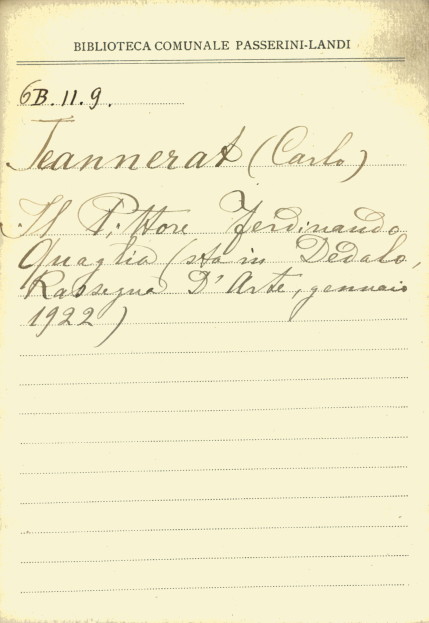 BIBLIOTECA COMUNALE PASSERINI-LANDI
6B.11.9.
Jeannerat (Carlo)
Il Pittore Ferdinando
Quaglia (sta in Dedalo,
Rassegna D'Arte, gennaio
1922)